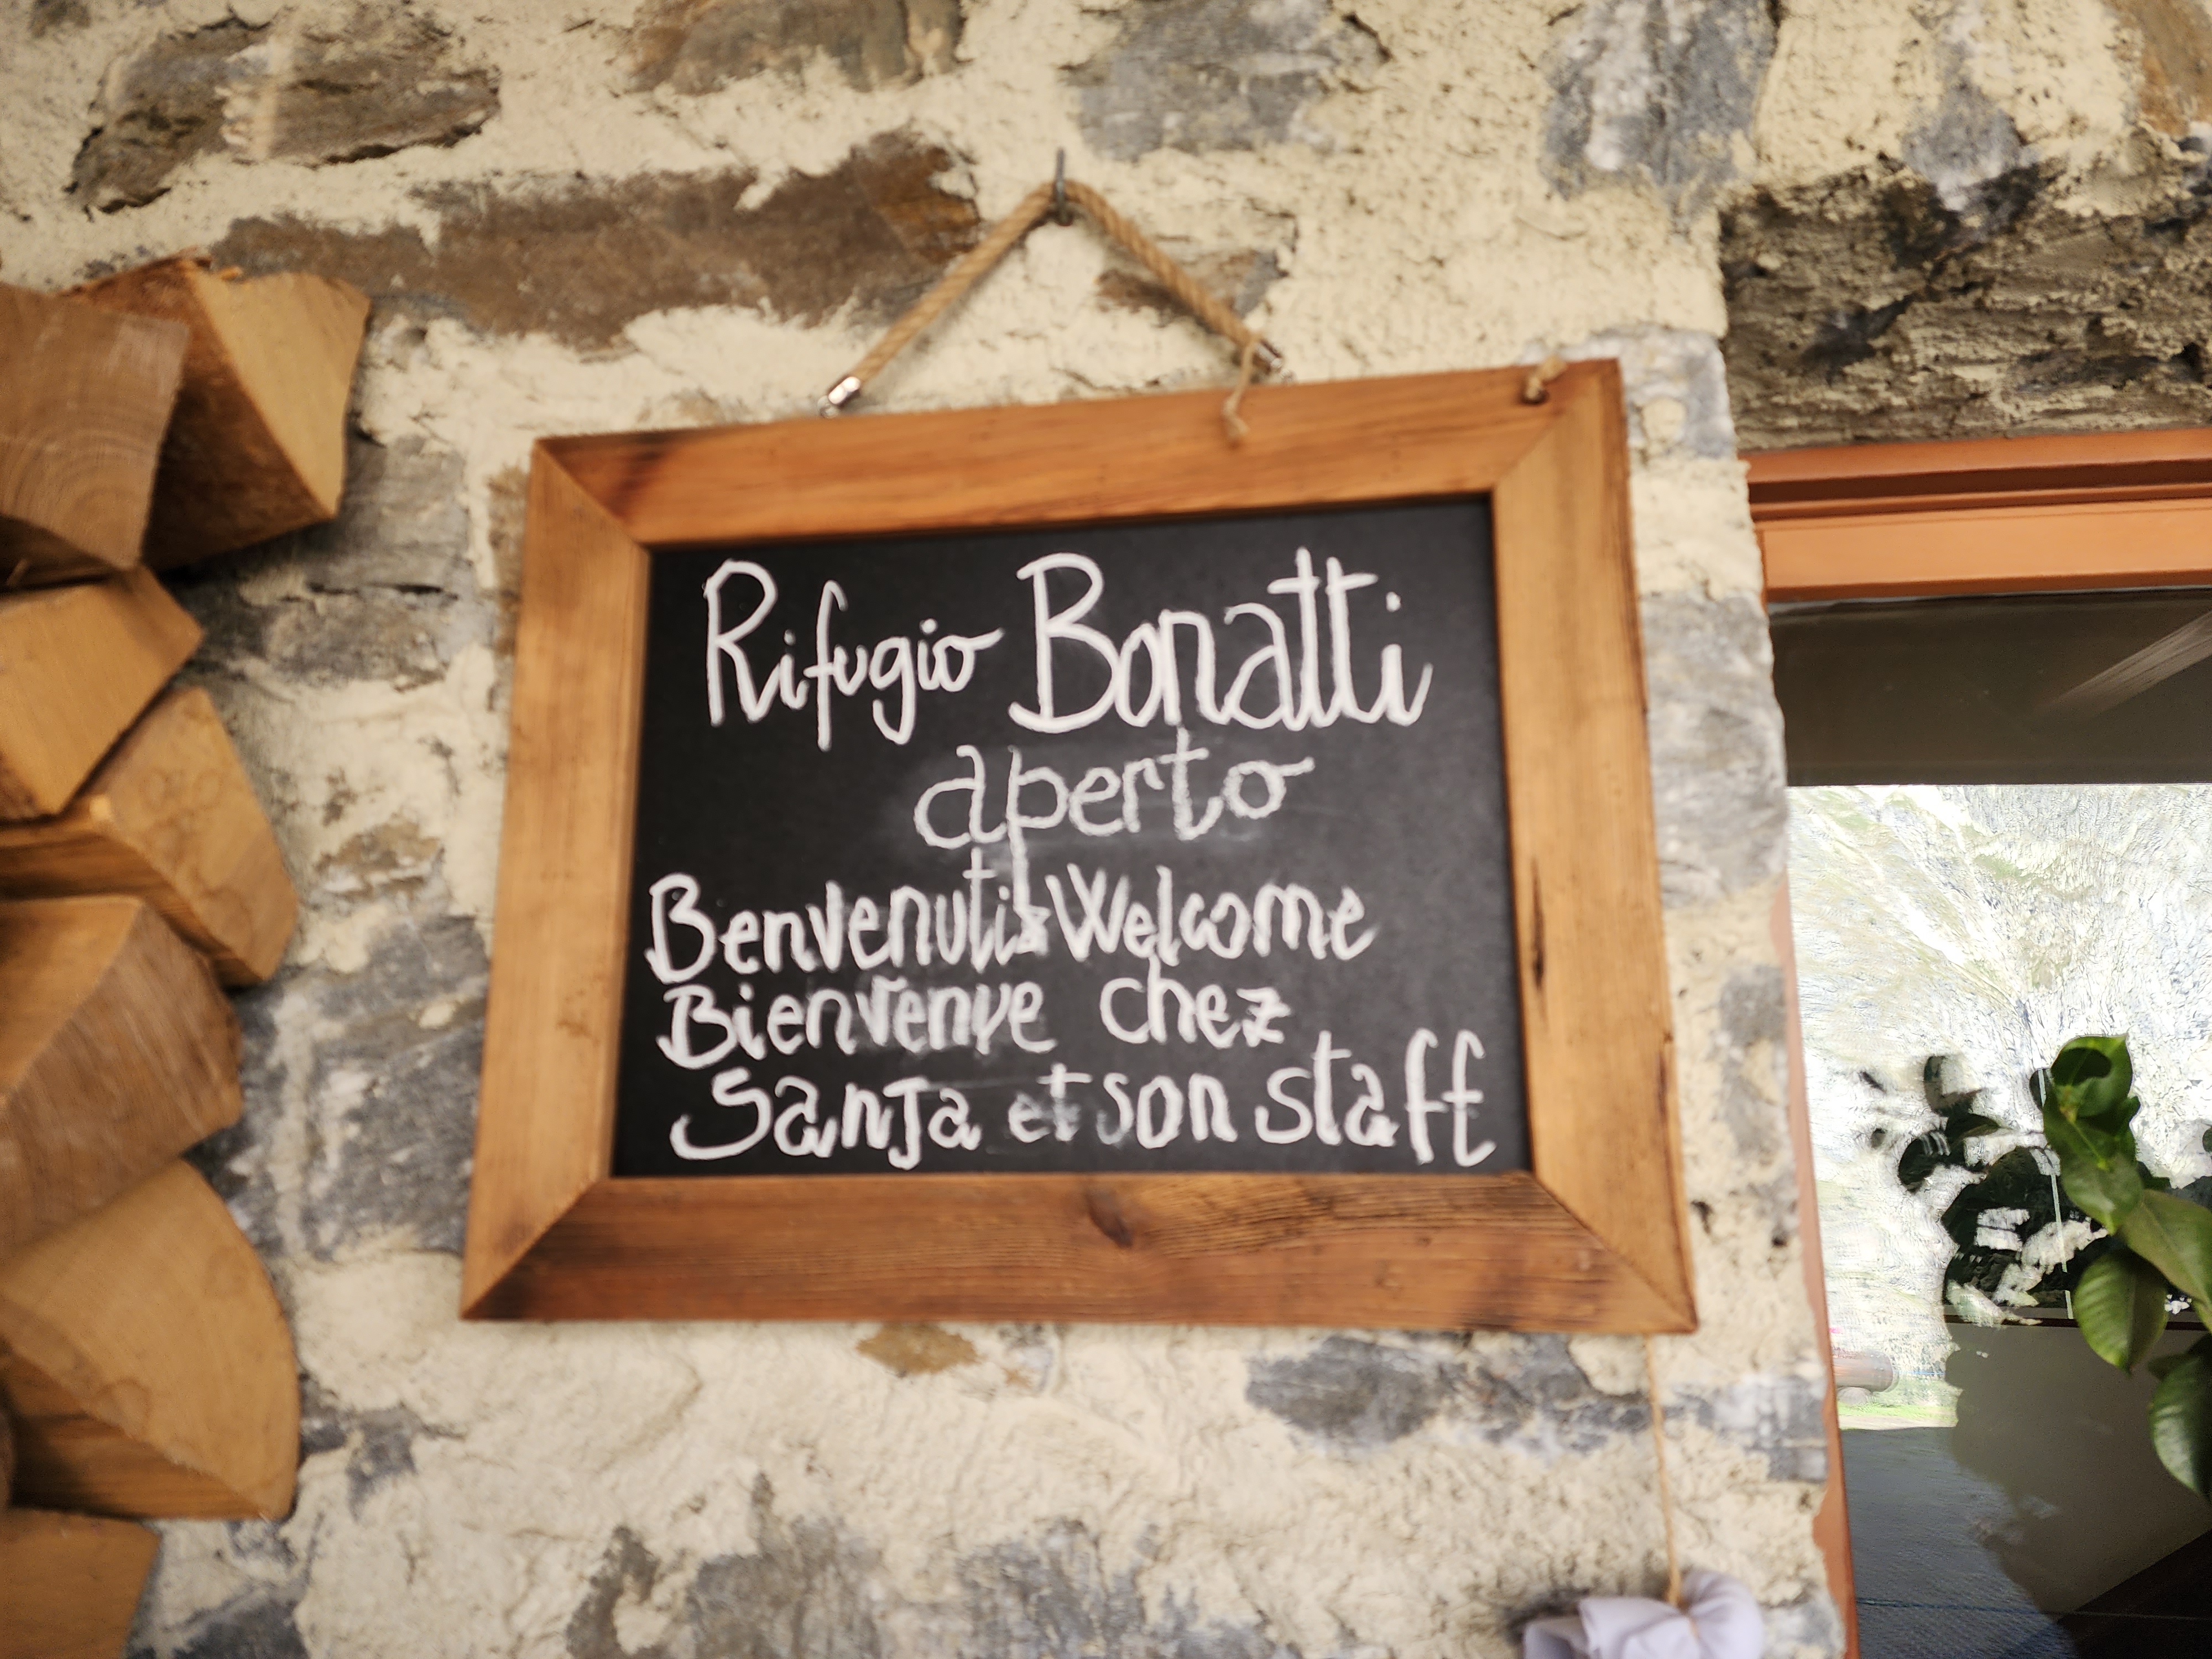 Rifugio Bonatti
aperto
Benvenuti Welcome
Bienvenue chez
Sanja et son staff